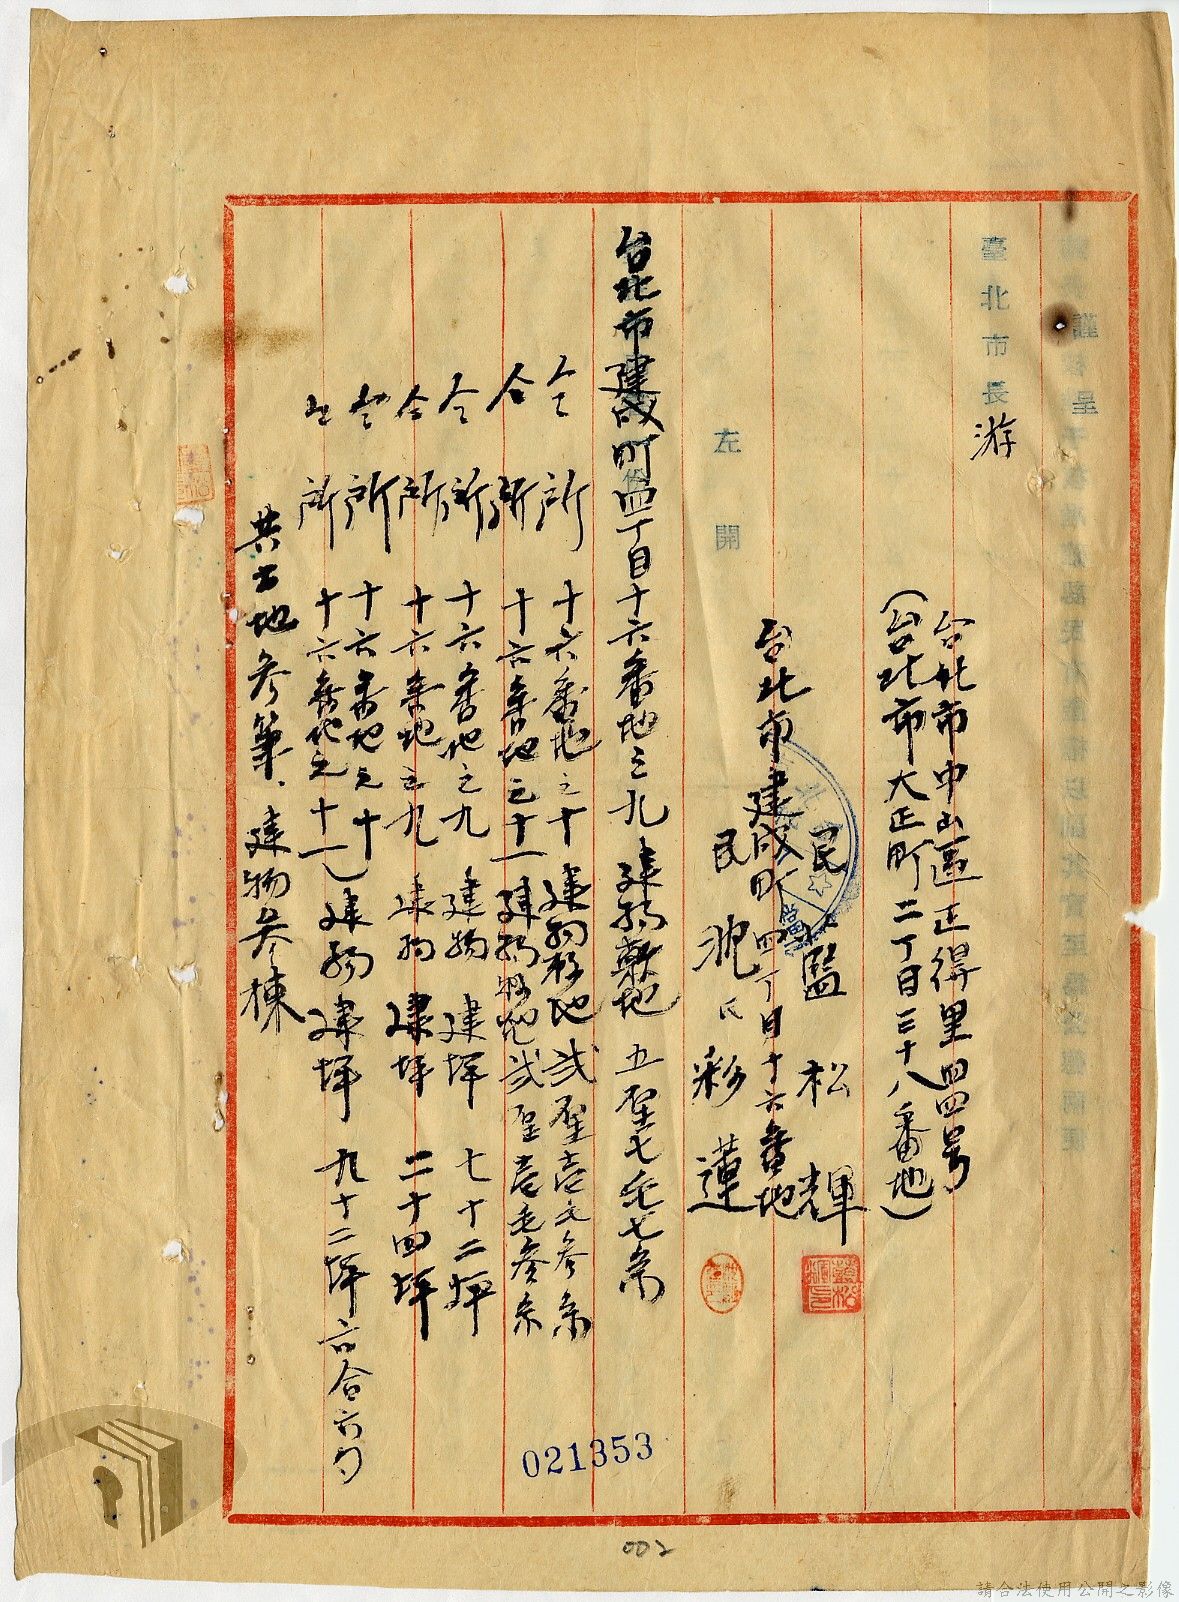 謹呈
臺北市長 游
台北市中山區正得里四四号
(台北市大正町二丁目三十八番地)
民 藍 松 輝
台北市建成町四丁目十六番地
民 沈氏彩蓮
左開
台北市建成町四丁目十六番地之九 建物敷地 五厘七毛七糸
仝所 十六番地之十 建物敷地 弐厘壱毛参糸
仝所 十六番地之十一 建物敷地 弐厘壱毛参糸
仝所 十六番地之九 建物 建坪 七十二坪
仝所 十六番地之九 建物 建坪 二十四坪
仝所 十六番地之十
仝所 十六番地之十一 建物 建坪 九十二坪六合六勺
共土地参筆、建物参棟
021353
002
請合法使用公開之影像